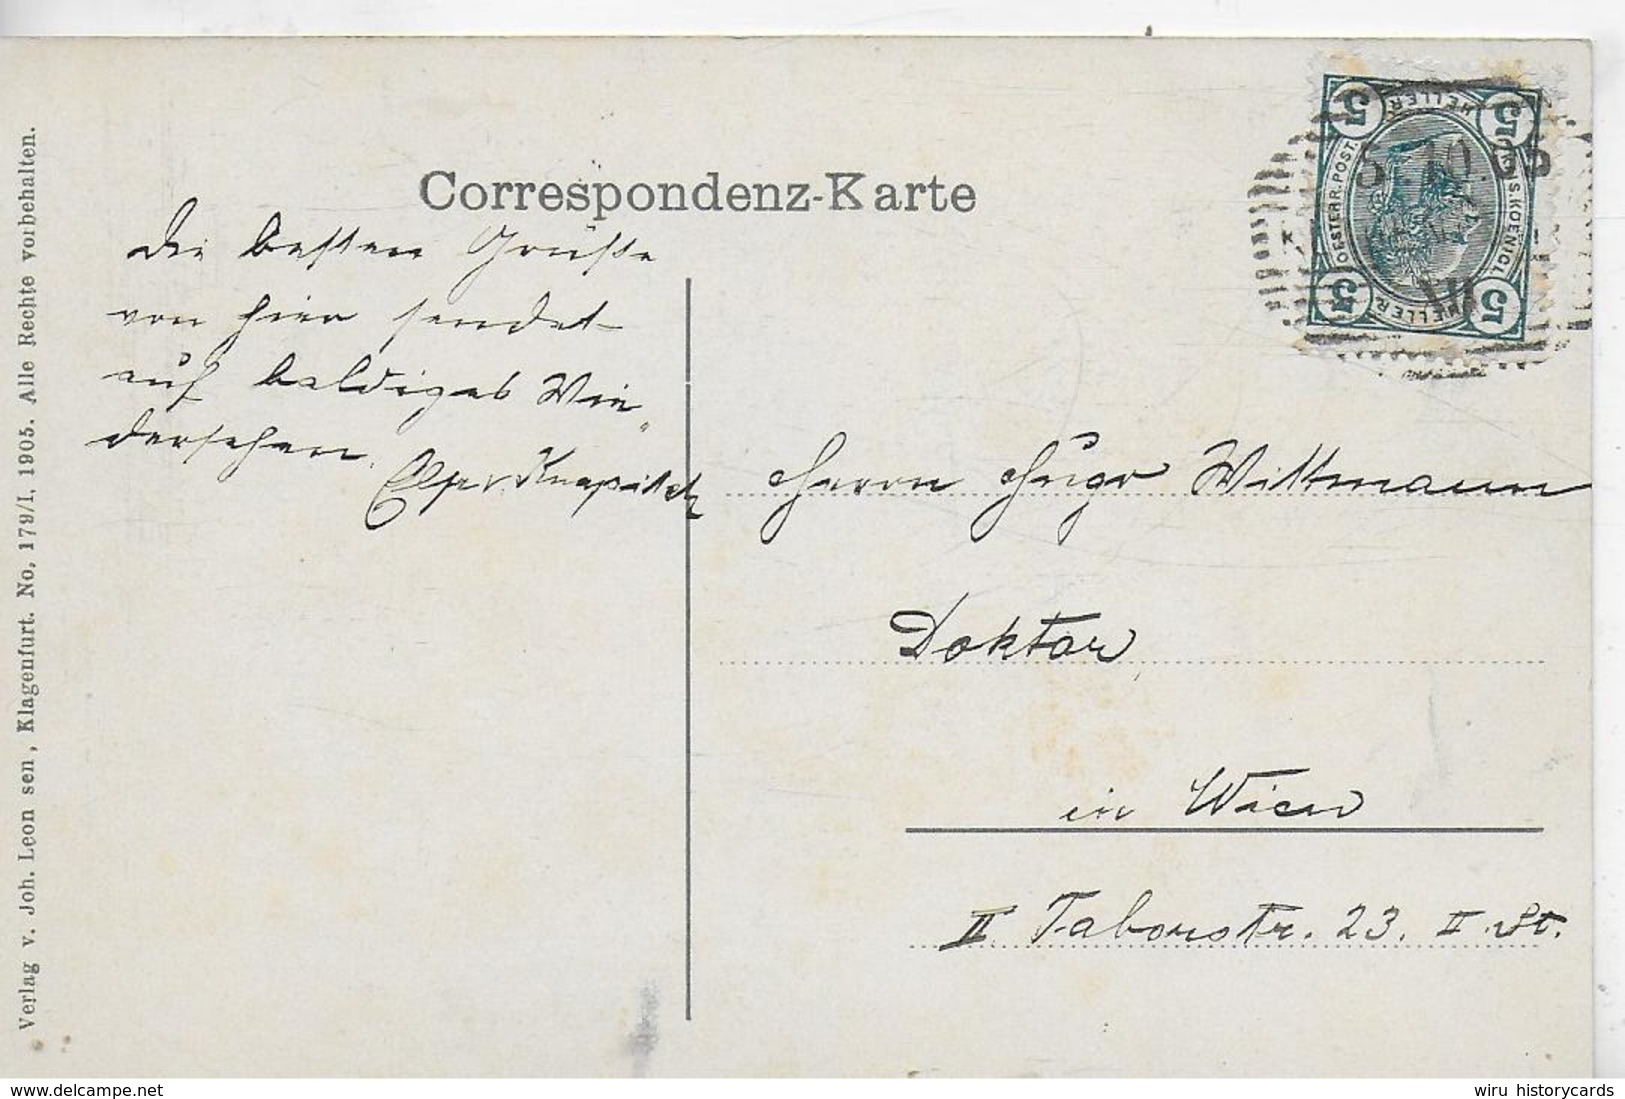 Correspondenz-Karte
Die besten Grüsse
von hier sendet
auf baldiges Wie„
dersehen.
Herrn Hugo Wittmann
Doktor
in Wien
II Taborstr. 23. II. St.
Verlag v. Joh. Leon sen., Klagenfurt. No, 179/I, 1905. Alle Rechte vorbehalten.
5 HELLER 5
OESTERR. POST.
5 HELLER 5
5.10.05
XII
www.delcampe.net
wiru historycards